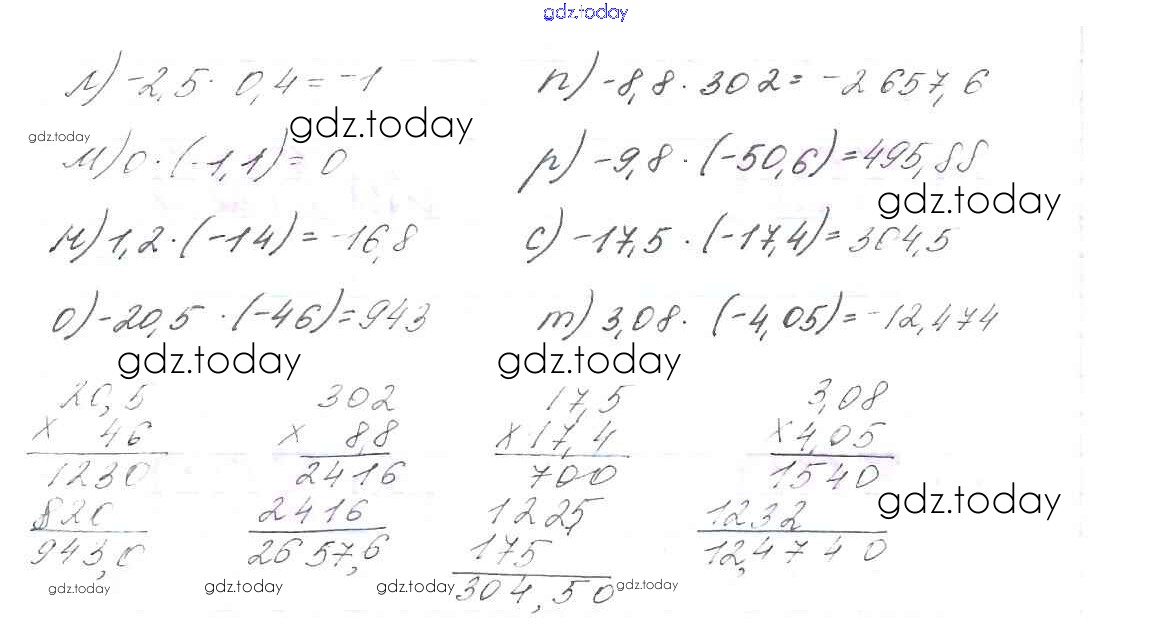 gdz.today
л) -2,5 · 0,4 = -1
п) -8,8 · 302 = -2657,6
gdz.today
gdz.today
м) 0 · (-1,1) = 0
р) -9,8 · (-50,6) = 495,88
gdz.today
н) 1,2 · (-14) = -16,8
с) -17,5 · (-17,4) = 304,5
о) -20,5 · (-46) = 943
т) 3,08 · (-4,05) = -12,474
gdz.today
gdz.today
20,5
× 46
1230
820
943,0
302
× 8,8
2416
2416
2657,6
17,5
× 17,4
700
1225
175
304,50
3,08
× 4,05
1540
1232
12,4740
gdz.today
gdz.today
gdz.today
gdz.today
gdz.today